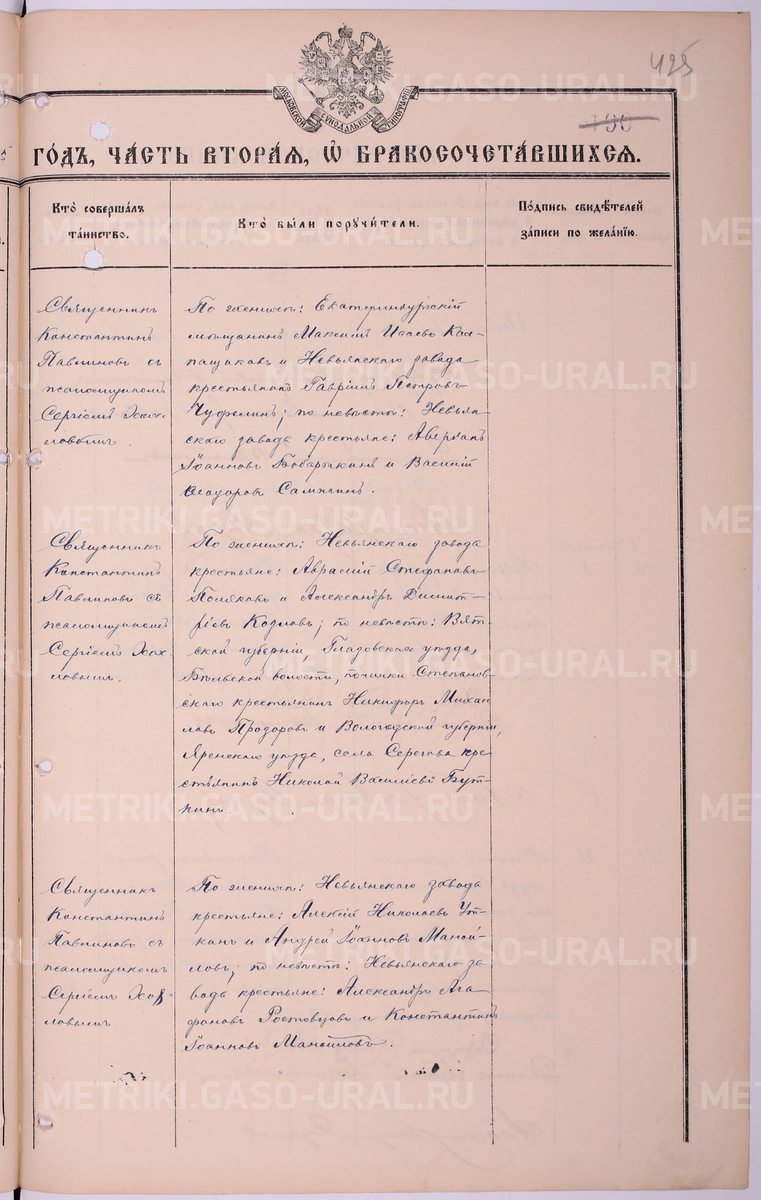 425
МОСКОВСКОЙ СИНОДАЛЬНОЙ ТИПОГРАФІИ
го́дъ, ча́сть втора́ѧ, ѡ҆ бракосочета́вшихсѧ.
Кто̀ соверша́лъ
та́инство.
Кто̀ бы́ли поручи́тели.
По́дпись свидѣ́телей
за́писи по жела́нїю.
Священникъ
Константинъ
Павлиновъ съ
псаломщикомъ
Сергіемъ Хох-
ловымъ.
По женихѣ: Екатеринбургскій
мѣщанинъ Максимъ Исаевъ Кал-
пащиковъ и Невьянскаго завода
крестьянинъ Гавріилъ Петровъ
Чуфелинъ; по невѣстѣ: Невьян-
скаго завода крестьяне: Аверкій
Іоанновъ Бабарыкинъ и Василій
Ѳеодоровъ Сажинъ.
Священникъ
Константинъ
Павлиновъ съ
псаломщикомъ
Сергіемъ Хох-
ловымъ.
По женихѣ: Невьянскаго завода
крестьяне: Аврамій Стефановъ
Поляковъ и Александръ Димит-
ріевъ Козловъ; по невѣстѣ: Вят-
ской губерніи, Глазовскаго уѣзда,
Бѣльской волости, починка Степанов-
скаго крестьянинъ Никифоръ Михаи-
ловъ Прозоровъ и Вологодской губерніи,
Яренскаго уѣзда, села Серегова кре-
стьянинъ Николай Василіевъ Бут-
кинъ.
Священникъ
Константинъ
Павлиновъ съ
псаломщикомъ
Сергіемъ Хох-
ловымъ
По женихѣ: Невьянскаго завода
крестьяне: Алексій Николаевъ Ут-
кинъ и Андрей Іоанновъ Маной-
ловъ; по невѣстѣ: Невьянскаго за-
вода крестьяне: Александръ Ага-
фоновъ Ростовцовъ и Константинъ
Іоанновъ Маноиловъ.
METRIKI.GASO-URAL.RU